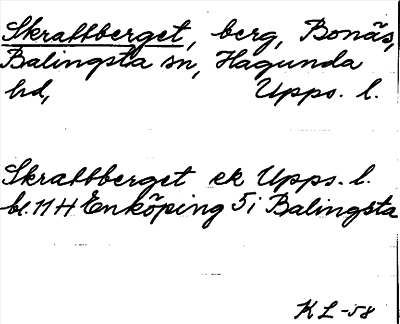 Skrattberget, berg, Bonäs,
Balingsta sn, Hagunda
hd, Upps. l.
Skrattberget ek Upps. l.
bl. 11 H Enköping 5i Balingsta
KL-58